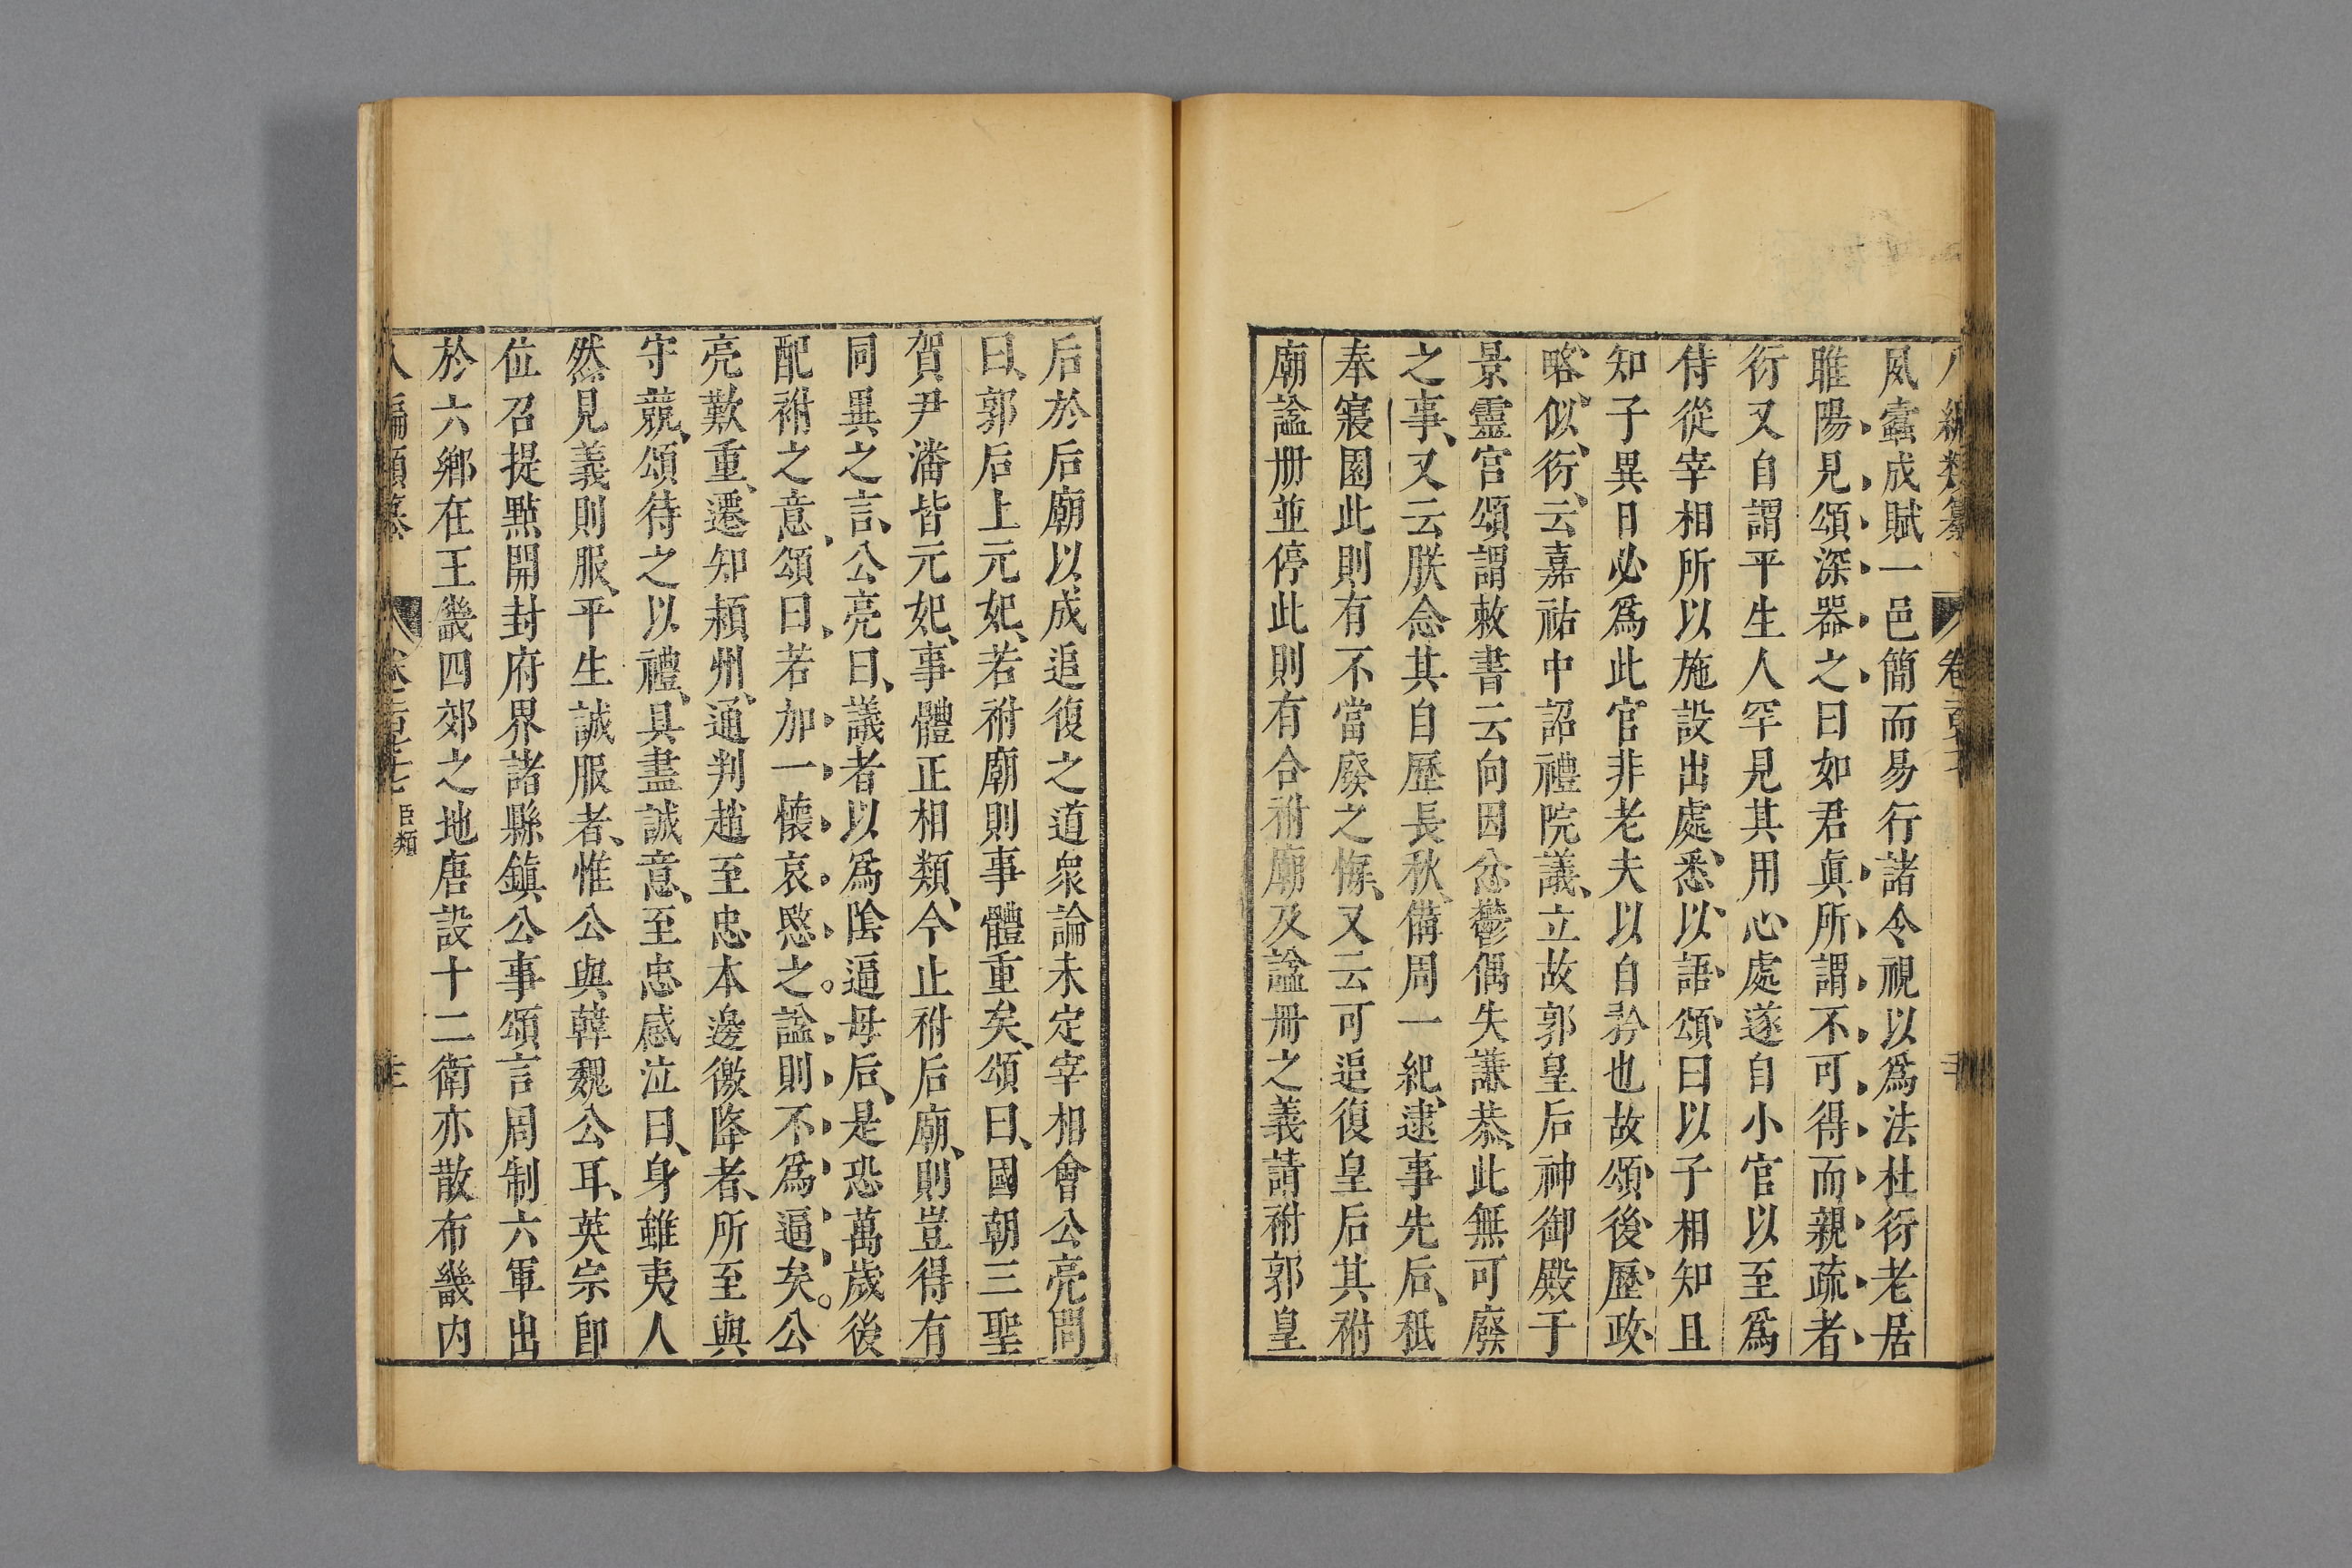 八編類纂 卷百
夙蠹成賦一邑簡而易行諸令視以爲法杜衍老居
睢陽見頌深器之曰如君眞所謂不可得而親疏者
衍又自謂平生人罕見其用心處遂自小官以至爲
侍從宰相所以施設出處悉以語頌曰以子相知且
知子異日必爲此官非老夫以自矜也故頌後歷政
略似衍云嘉祐中詔禮院議立故郭皇后神御殿于
景靈宮頌謂敕書云向因忿鬱偶失謙恭此無可廢
之事又云朕念其自歷長秋備周一紀逮事先后祗
奉寢園此則有不當廢之悔又云可追復皇后其祔
廟謚册並停此則有合祔廟及謚册之義請祔郭皇
后於后廟以成追復之道衆論未定宰相會公亮問
曰郭后上元妃若祔廟則事體重矣頌曰國朝三聖
賀尹潘皆元妃事體正相類今止祔后廟則豈得有
同異之言公亮曰議者以爲陰逼母后是恐萬歲後
配祔之意頌曰若加一懷哀愍之謚則不爲逼矣公
亮歎重遷知潁州通判趙至忠本邊徼降者所至與
守競頌待之以禮具盡誠意至忠感泣曰身雖夷人
然見義則服平生誠服者惟公與韓魏公耳英宗卽
位召提點開封府界諸縣鎮公事頌言周制六軍出
於六鄉在王畿四郊之地唐設十二衛亦散布畿内
八編類纂 卷百 臣類